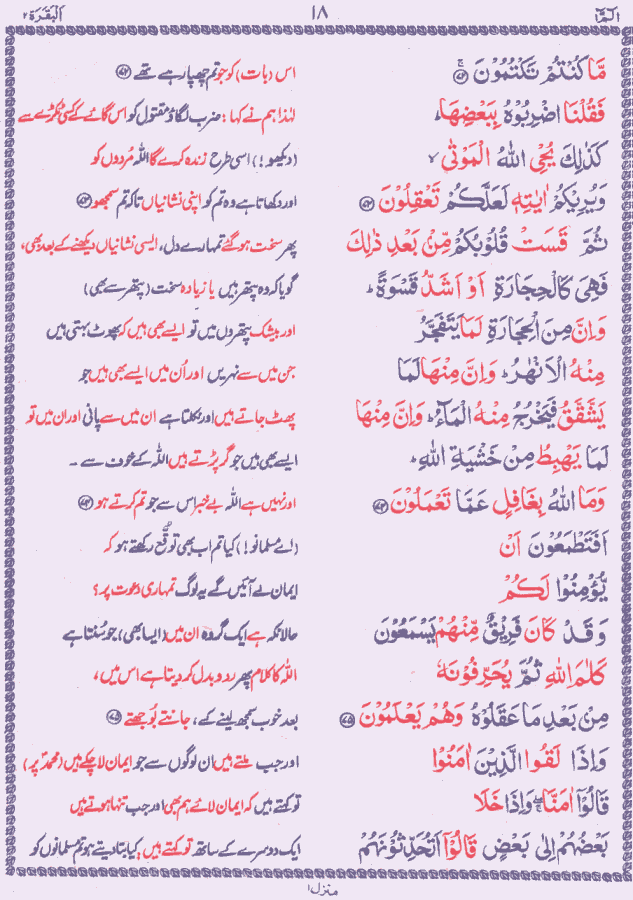 الٓمّٓ ١
١٨
اَلْبَقَرَة ٢
مَّا كُنْتُمْ تَكْتُمُوْنَ ۚ ﴿۷۲﴾
اس (بات) کو جو تم چھپا رہے تھے ﴿۷۲﴾
فَقُلْنَا اضْرِبُوْهُ بِبَعْضِهَا ؕ
لہٰذا ہم نے کہا: ضرب لگاؤ مقتول کو اس گائے کے کسی ٹکڑے سے
كَذٰلِكَ يُحْیِ اللّٰهُ الْمَوْتٰى ۙ
(دیکھو!) اسی طرح زندہ کرے گا اللہ مُردوں کو
وَيُرِيْكُمْ اٰيٰتِهٖ لَعَلَّكُمْ تَعْقِلُوْنَ ﴿۷۳﴾
اور دکھاتا ہے وہ تم کو اپنی نشانیاں تاکہ تم سمجھو ﴿۷۳﴾
ثُمَّ قَسَتْ قُلُوْبُكُمْ مِّنْۢ بَعْدِ ذٰلِكَ
پھر سخت ہو گئے تمہارے دل، ایسی نشانیاں دیکھنے کے بعد بھی،
فَهِیَ كَالْحِجَارَةِ اَوْ اَشَدُّ قَسْوَةً ؕ
گویا کہ وہ پتھر ہیں یا زیادہ سخت (پتھر سے بھی)
وَاِنَّ مِنَ الْحِجَارَةِ لَمَا يَتَفَجَّرُ
اور بیشک پتھروں میں تو ایسے بھی ہیں کہ پھوٹ بہتی ہیں
مِنْهُ الْاَنْهٰرُ ؕ وَاِنَّ مِنْهَا لَمَا
جن میں سے نہریں اور اُن میں ایسے بھی ہیں جو
يَشَّقَّقُ فَيَخْرُجُ مِنْهُ الْمَآءُ ؕ وَاِنَّ مِنْهَا
پھٹ جاتے ہیں اور نکلتا ہے ان میں سے پانی اور ان میں تو
لَمَا يَهْبِطُ مِنْ خَشْيَةِ اللّٰهِ ؕ
ایسے بھی ہیں جو گر پڑتے ہیں اللہ کے خوف سے ۔
وَمَا اللّٰهُ بِغَافِلٍ عَمَّا تَعْمَلُوْنَ ﴿۷۴﴾
اور نہیں ہے اللہ بے خبر اس سے جو تم کرتے ہو ﴿۷۴﴾
اَفَتَطْمَعُوْنَ اَنْ
(اے مسلمانو!) کیا تم اب بھی توقُّع رکھتے ہو کہ
يُّؤْمِنُوْا لَكُمْ
ایمان لے آئیں گے یہ لوگ تمہاری دعوت پر؟
وَقَدْ كَانَ فَرِيْقٌ مِّنْهُمْ يَسْمَعُوْنَ
حالانکہ ہے ایک گروہ ان میں (ایسا بھی)، جو سُنتا ہے
كَلٰمَ اللّٰهِ ثُمَّ يُحَرِّفُوْنَهٗ
اللہ کا کلام پھر ردوبدل کر دیتا ہے اس میں،
مِنْۢ بَعْدِ مَا عَقَلُوْهُ وَهُمْ يَعْلَمُوْنَ ﴿۷۵﴾
بعد خوب سمجھ لینے کے، جانتے بُوجھتے ﴿۷۵﴾
وَاِذَا لَقُوا الَّذِيْنَ اٰمَنُوْا
اور جب ملتے ہیں ان لوگوں سے جو ایمان لا چکے ہیں (محمدؐ پر)
قَالُوْٓا اٰمَنَّا ۖۚ وَاِذَا خَلَا
تو کہتے ہیں کہ ایمان لائے ہم بھی اور جب تنہا ہوتے ہیں
بَعْضُهُمْ اِلٰى بَعْضٍ قَالُوْٓا اَتُحَدِّثُوْنَهُمْ
ایک دوسرے کے ساتھ تو کہتے ہیں: کیا بتا دیتے ہو تم مسلمانوں کو
منزل ۱